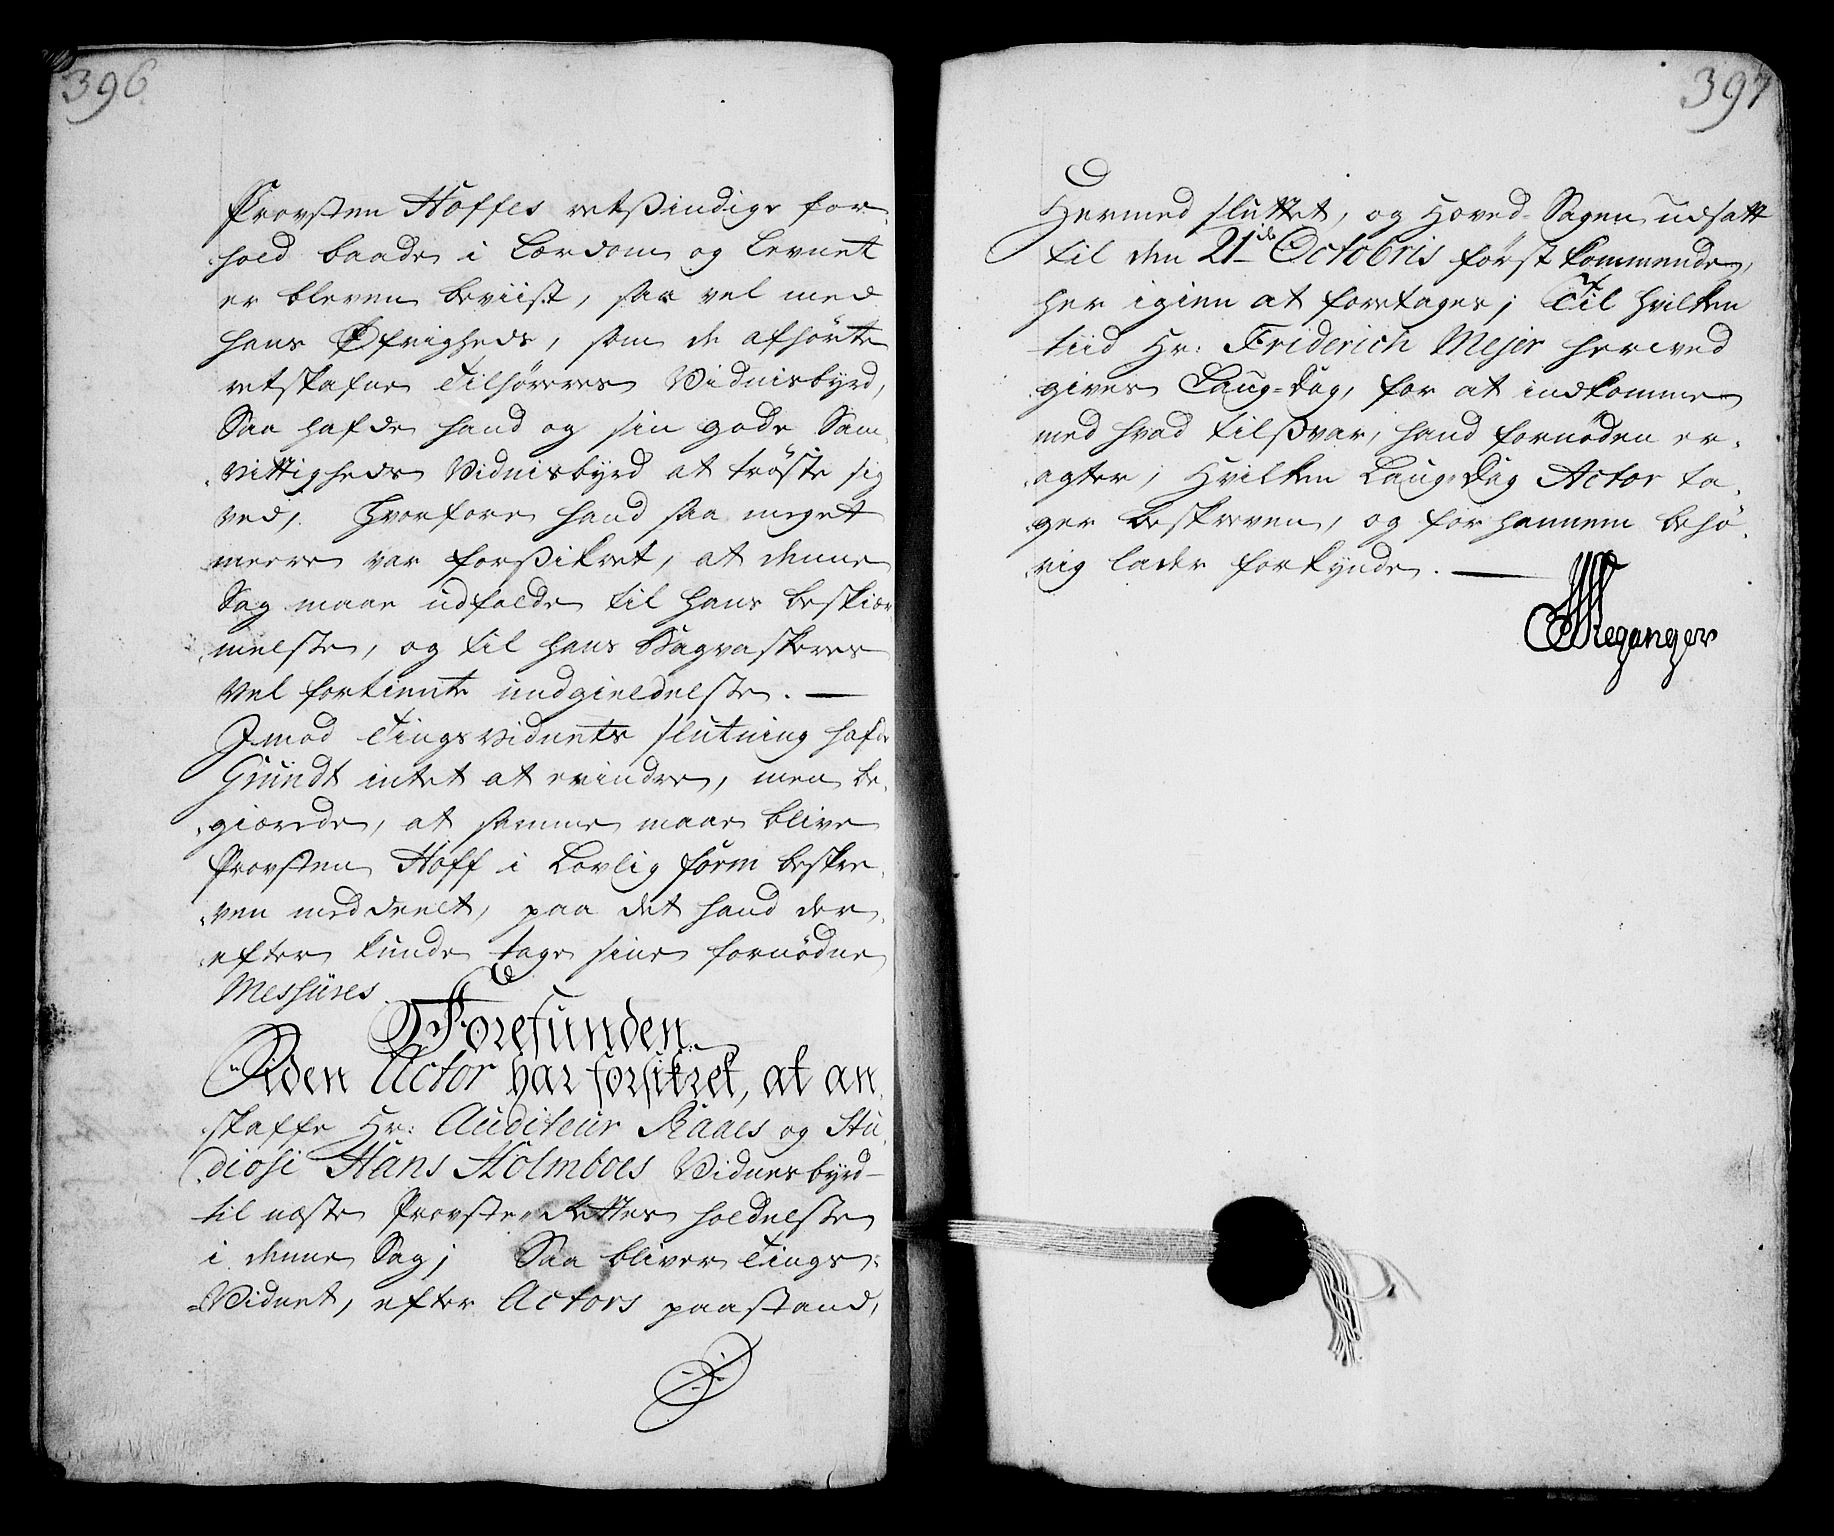 396
Provsten Hoffes retsindige for-
hold baade i Lærdom og Levnet
er bleven beviist, saa vel med
hans Øfrigheds, som de afhørte
retskafne Tilhøreres Vidnisbyrd,
Saa hafde hand og sin gode Sam-
vittigheds Vidnisbyrd at trøste sig
ved, Hvorfore hand saa meget
meere var forsikret, at denne
Sag maae udfalde til hans beskiær-
melse, og til hans Bagvaskeres
vel fortiente undgieldelse. —
Imod Tingsvidnets slutning hafde
Grundt intet at erindre, men be-
giærede, at samme maae blive
Provsten Hoff i Lovlig form beskre-
ven meddeelt, paa det hand der-
efter kunde tage sine fornødne
Messures.
Foresunden.
Siden Actor har forsikret, at an-
skaffe Hr: Auditeur Raaes og Stu-
diosi Hans Holmboes Vidnesbyrd
til næste Provste-Rettes holdelse
i denne Sag; Saa bliver Tings-
Vidnet, efter Actors paastand,
397
Hermed sluttet, og Hoved-Sagen udsatt
til den 21de Octobris først kommende,
her igien at foretages; Til hvilken
tiid Hr: Friderich Mejer herved
gives Laug-Dag, for at indkomme
med hvad tilsvar, hand fornøden er-
agter; Hvilken Laug-Dag Actor ta-
ger beskreven, og for hannem behø-
rig lader forkynde. —